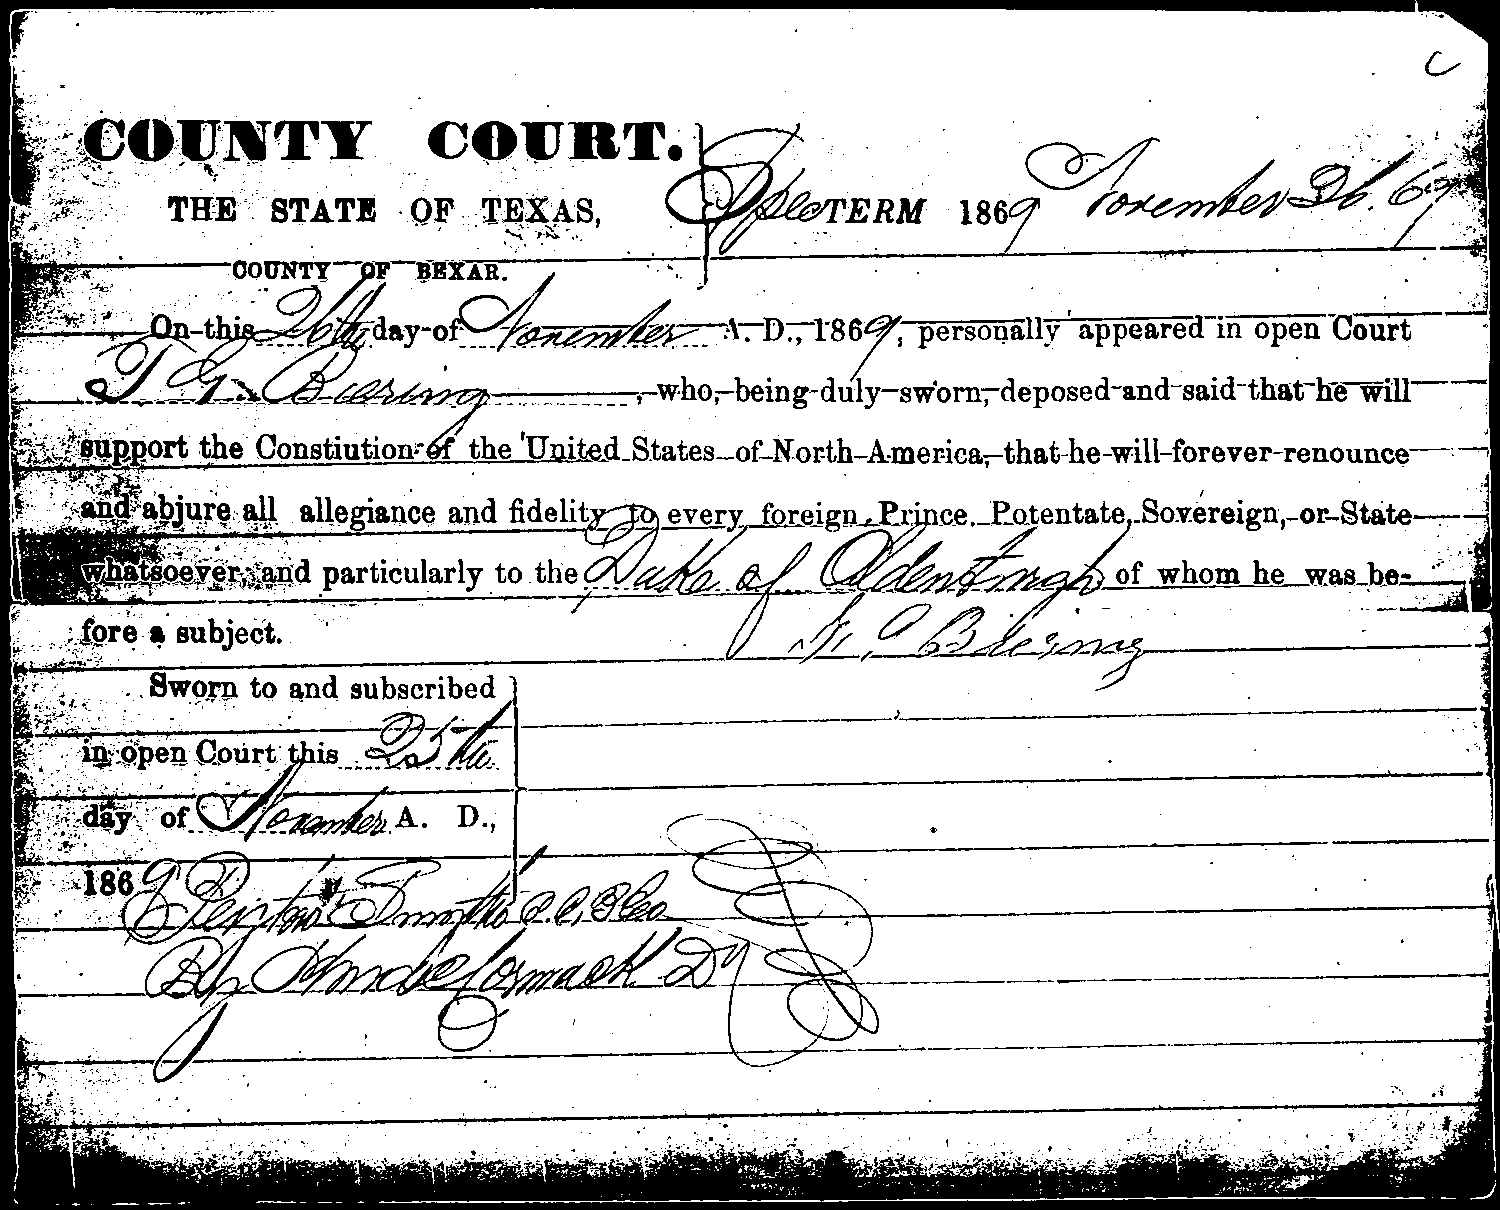 COUNTY COURT.
THE STATE OF TEXAS, TERM 1869 November 26. 69
COUNTY OF BEXAR.
On this 26th day of November A. D., 1869, personally appeared in open Court
F. G. Biering, who, being duly sworn, deposed and said that he will
support the Constiution of the United States of North America, that he will forever renounce
and abjure all allegiance and fidelity to every foreign Prince. Potentate, Sovereign, or State
whatsoever, and particularly to the Duke of Oldenburgh of whom he was be-
fore a subject.
F. G Biering
Sworn to and subscribed
in open Court this 25th
day of November A. D.,
1869
Smythe C. C. B Co
By McCormack Dy